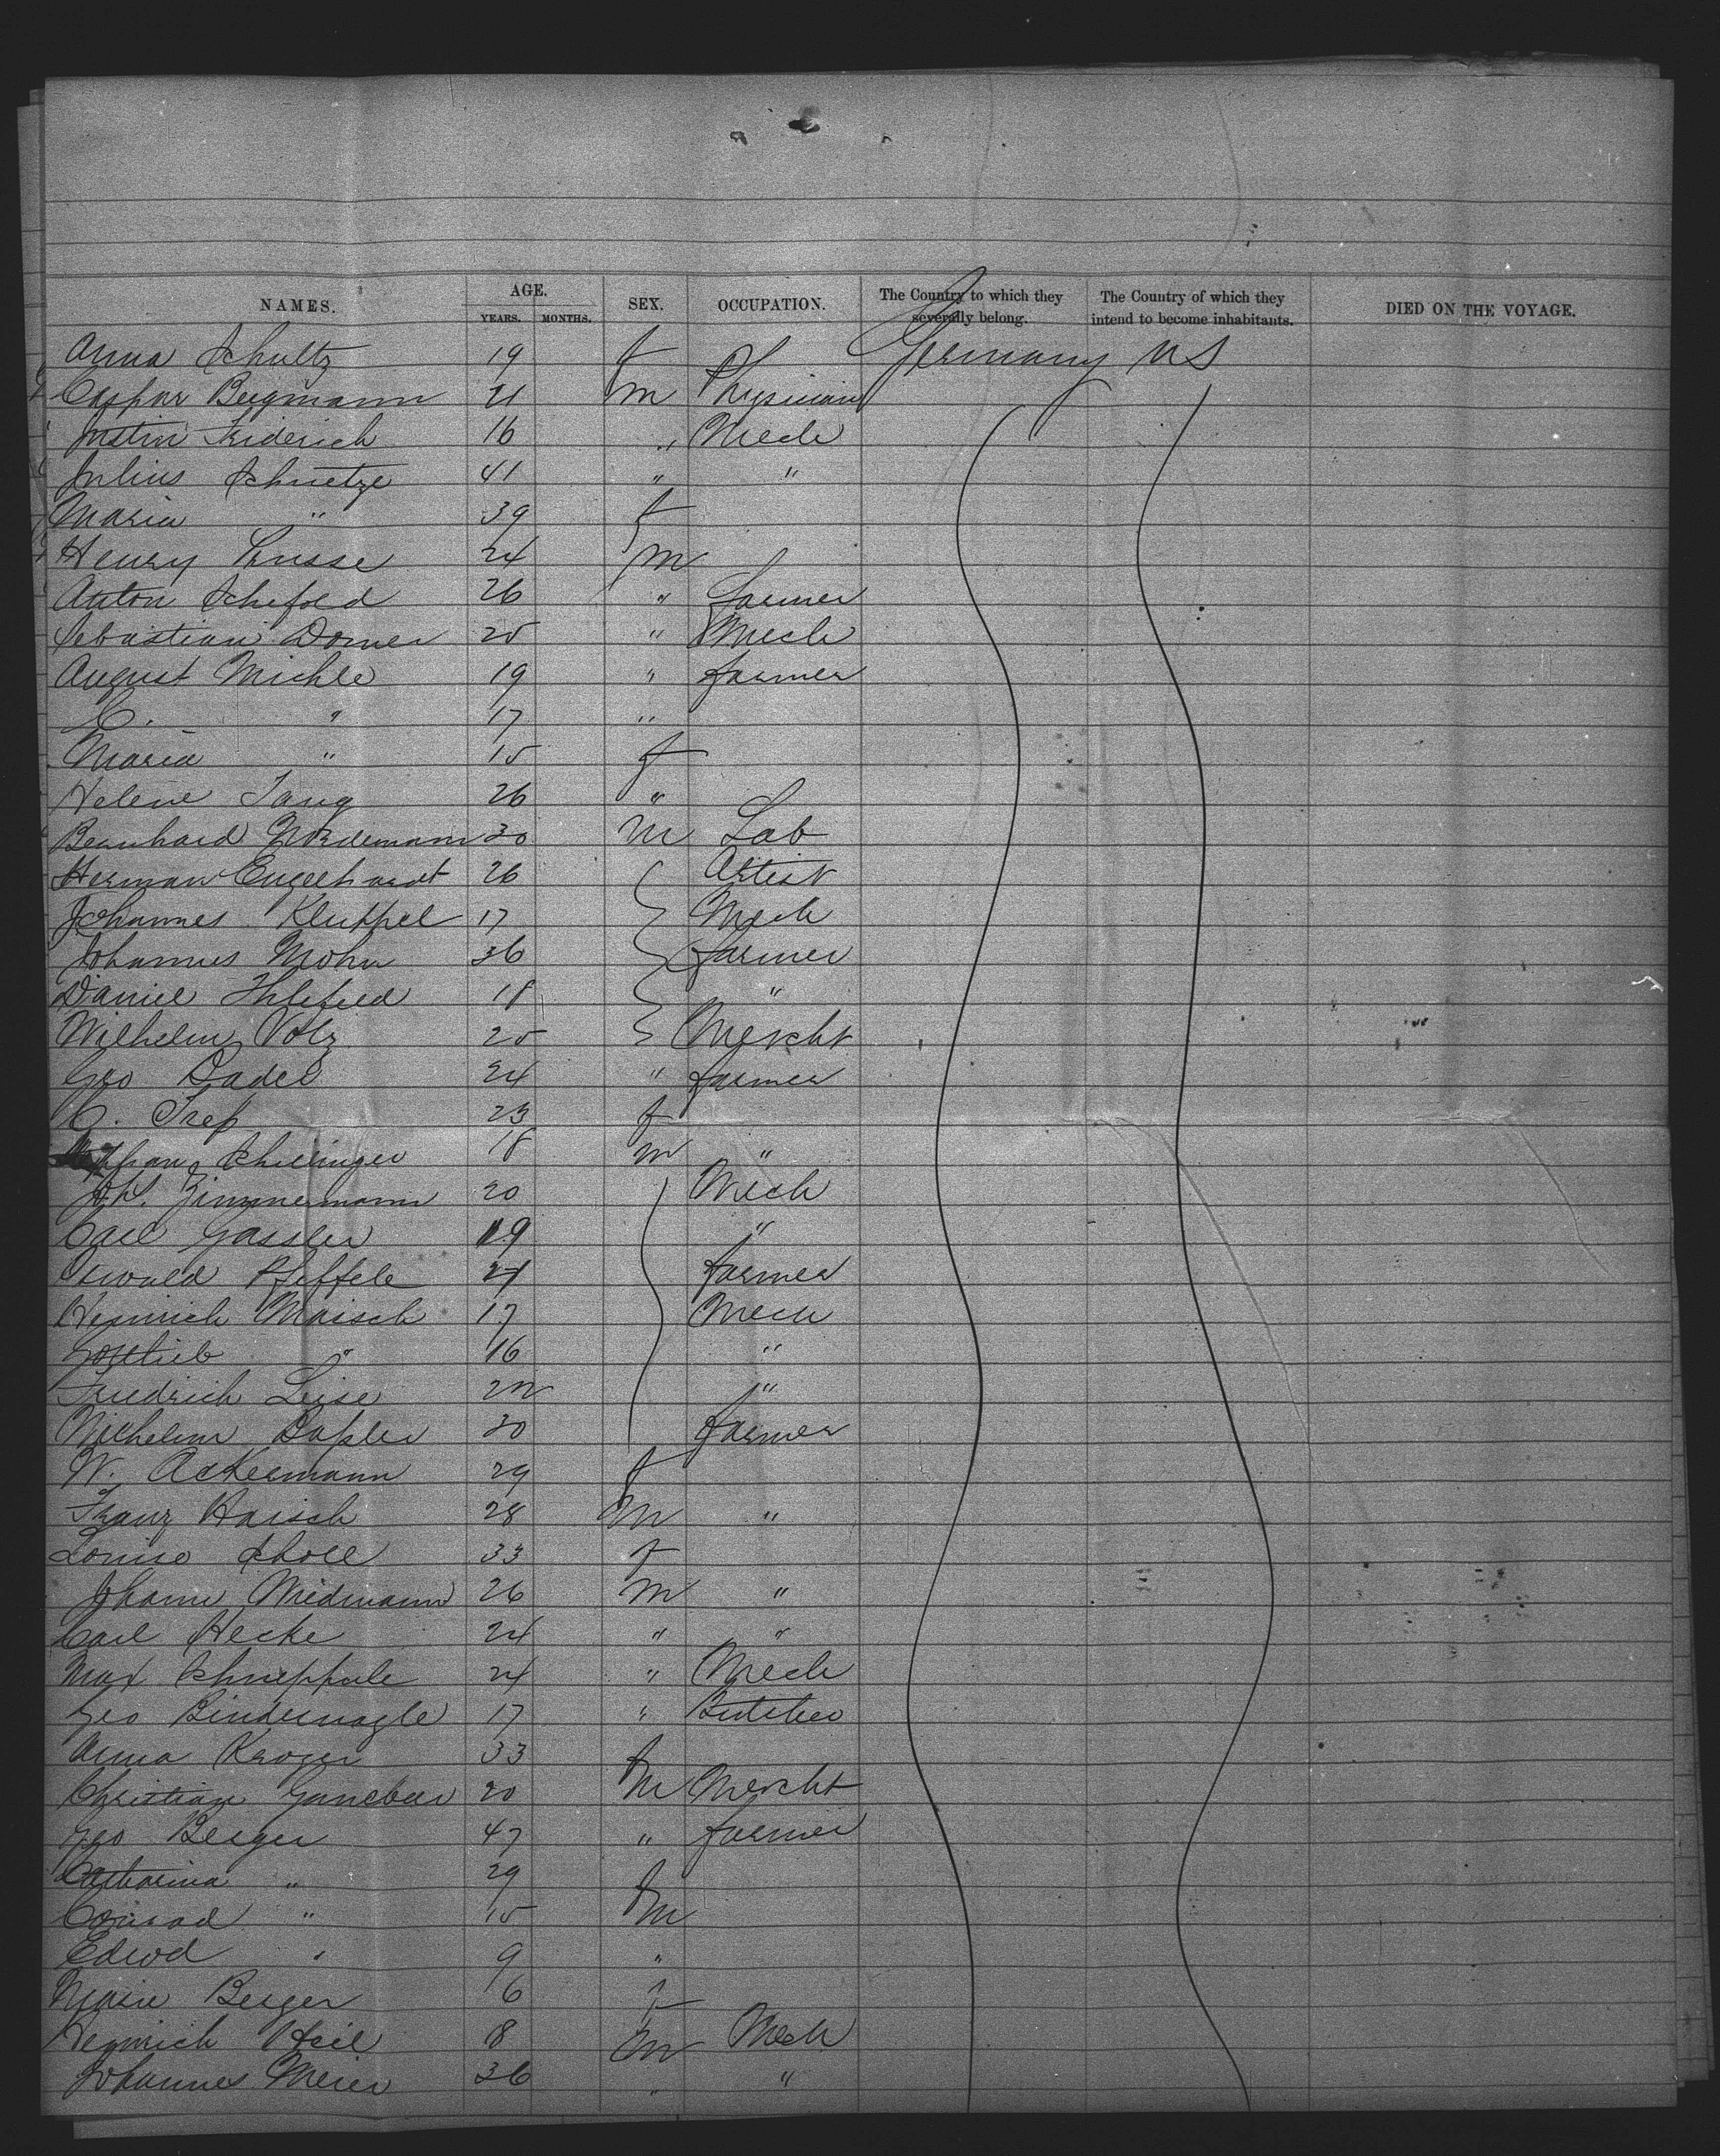 NAMES. AGE. SEX. OCCUPATION. The Country to which they severally belong. The Country of which they intend to become inhabitants. DIED ON THE VOYAGE.
YEARS. MONTHS.
Anna Schultz 19 f Germany US
Caspar Bergmann 21 m Physician
Justin Friderich 16 " Mech
Julius Schuetze 41 " "
Maria " 39 f
Henry 24 m
Anton Schefold 26 " Farmer
Sebastian Dorner 25 " Mech
August Michle 19 " farmer
C. " 17 "
Maria " 15 f
Helene Lang 26 "
Bernhard Nordemann 30 m Lab
Herman Engelhardt 26 Artist
Johannes Kluppel 17 Mech
Johannes Mohn 36 farmer
Daniel Ihlefeld 18 "
Wilhelm Volz 25 Mercht
Geo Bader 24 " farmer
C. Trep 23 f
Schillinger 18 m "
Joh. Zimmermann 20 Mech
Carl Gassler 19 "
Oswald Pfeffele 27 farmer
Heinrich Maisch 17 Mech
Gottlieb " 16 "
Friedrich Leise 22 "
Wilhelm 30 farmer
W. Ackermann 29 f
Franz Haisch 28 m "
Louise Scholl 33 f
Johann Widmann 26 m "
Carl Hecke 24 " "
Max 24 " Mech
Geo Bindernagle 17 " Butcher
Anna Kroger 33 f
Christian 20 m Mercht
Geo Berger 47 " farmer
Catharina " 29 f
Conrad " 15 m
Edwd " 9 "
Marie Berger 6 f
Heinrich Heil 8 m Mech
Johannes Meier 36 " "